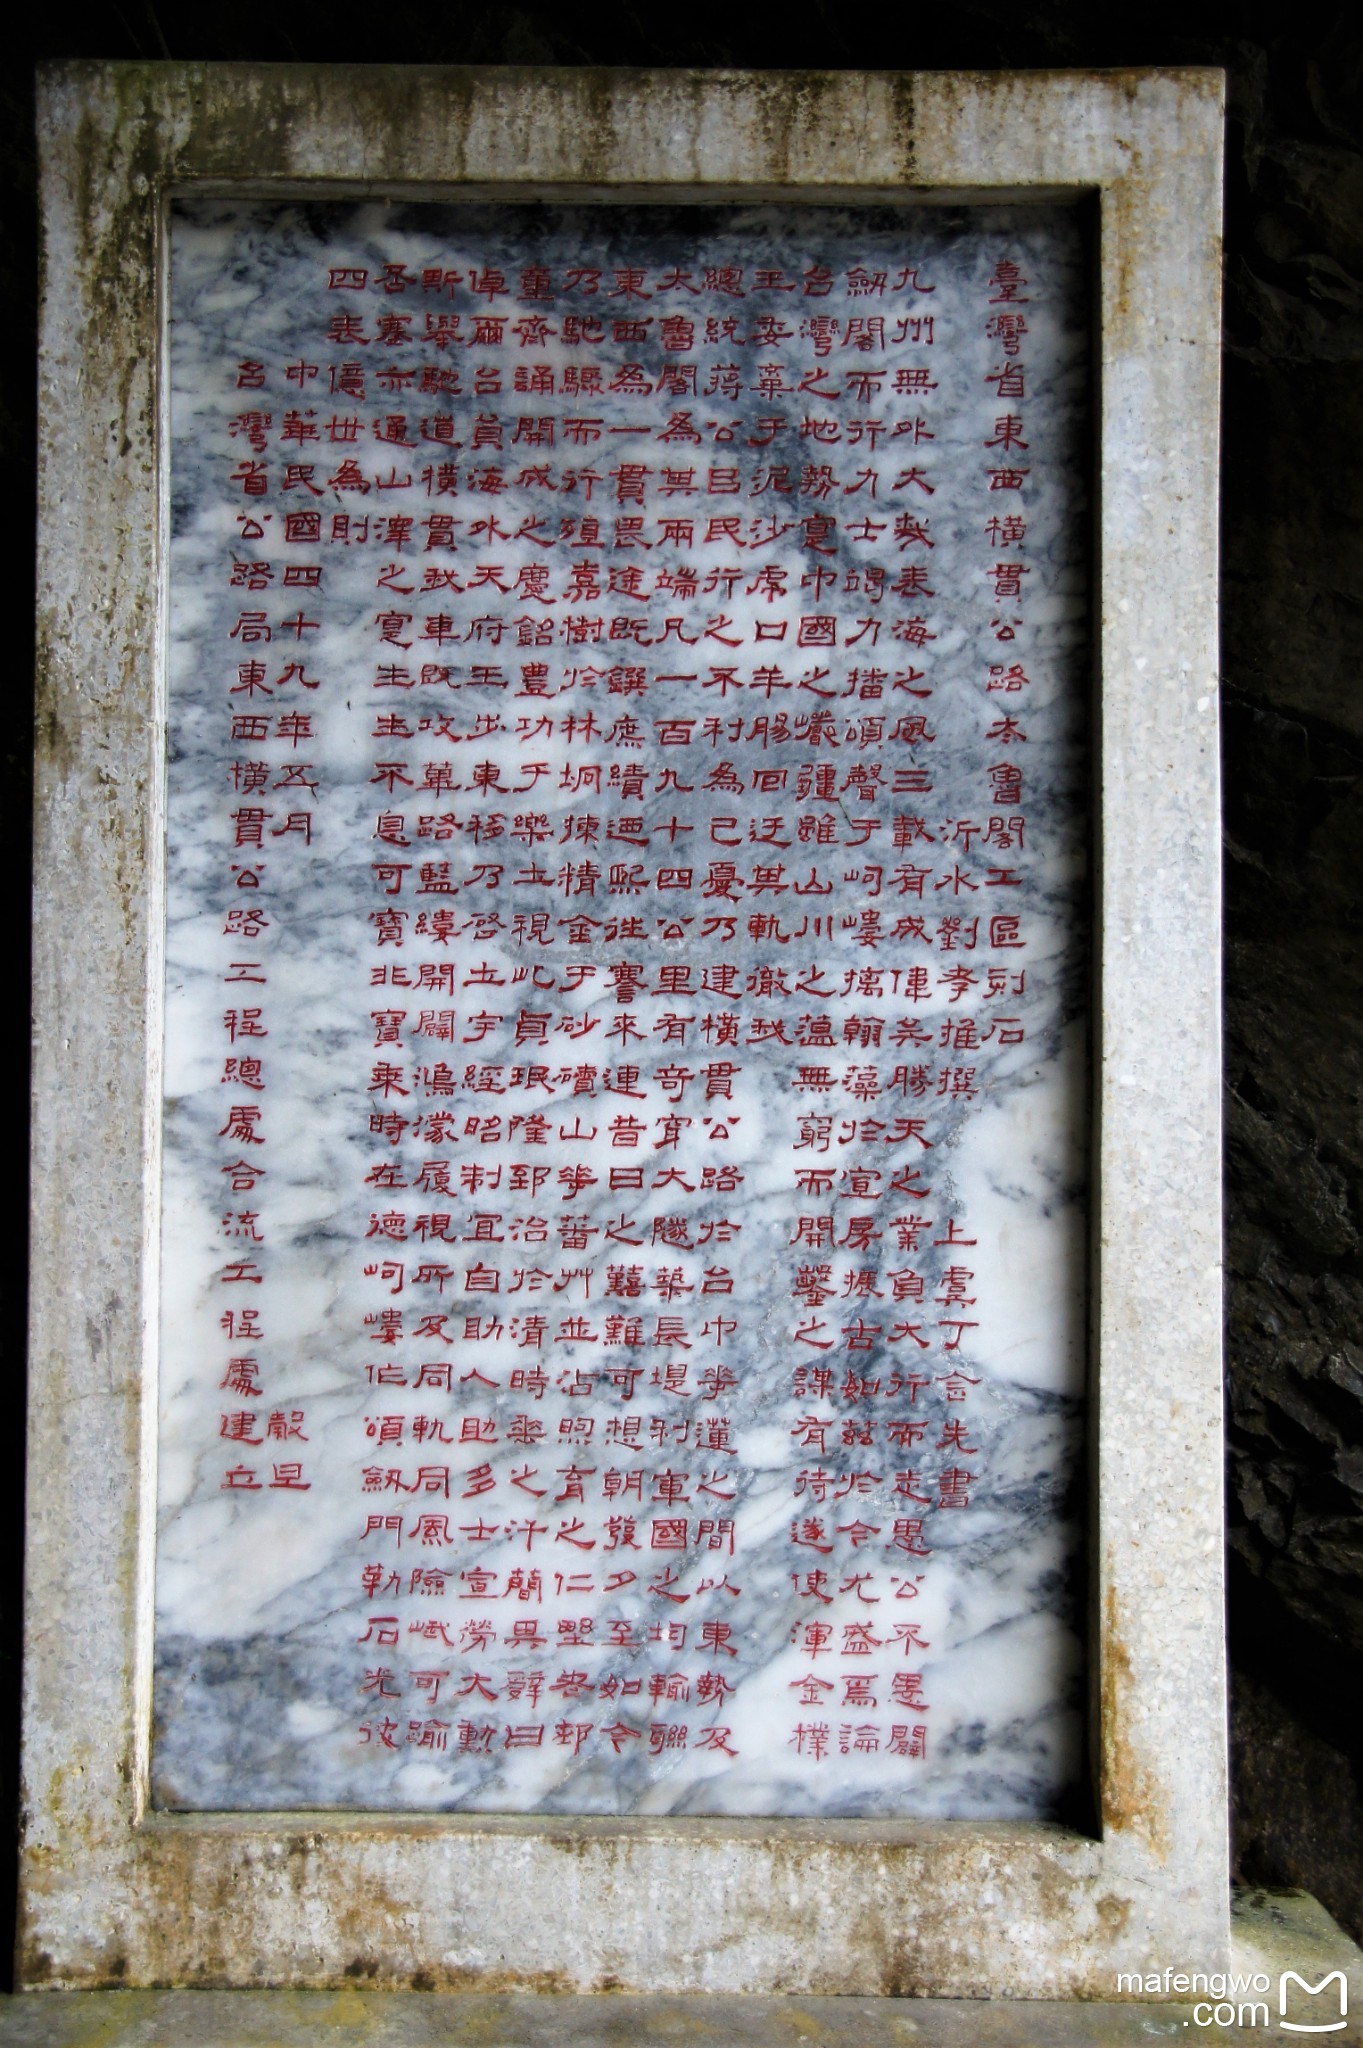 臺灣省東西橫貫公路太魯閣工區刻石
沂水劉孝推撰 上虞丁念先書
九州無外大哉表海之風三載有成偉矣勝天之業負大行而走愚公不愚闢
劔閣而行力士竭力播頌聲于岣嶁摛翰藻於宣房振古如茲於今尤盛焉論
台灣之地勢寔中國之巖疆雖山川之蕴無窮而開鑿之謀有待遂使渾金樸
玉委棄于泥沙虎口羊腸回迂其軌徹我
總統蔣公㠯民行之不利為己憂乃建橫貫公路於台中華蓮之間以東勢及
太魯閣為其兩端凡一百九十四公里有奇穿大隧築長堤利軍國之均輸聯
東西為一貫畏途既鏟庶績迺熙往蹇來連昔日之囏難可想朝發夕至如今
乃馳驟而行殖嘉樹於林坰揀精金于砂磧山華蕃艸並沾煦育之仁墅老邨
童齊誦開成之慶銘豐功于樂土視此貞珉隆郅治於清時垂之汗簡其辭曰
倬爾台員海外天府玉步東移乃啓土宇經昭制宜自助人助多士宣勞大勳
斯舉馳道橫貫我車既攻蓽路藍縷開闢鴻濛履視所及同軌同風險巇可踰
否塞亦通山澤之寔生生不息可寶非寶乘時在德岣嶁作頌劔門勒石光被
四表億世為則
中華民國四十九年五月 穀旦
台灣省公路局東西橫貫公路工程總處合流工程處建立
mafengwo
.com